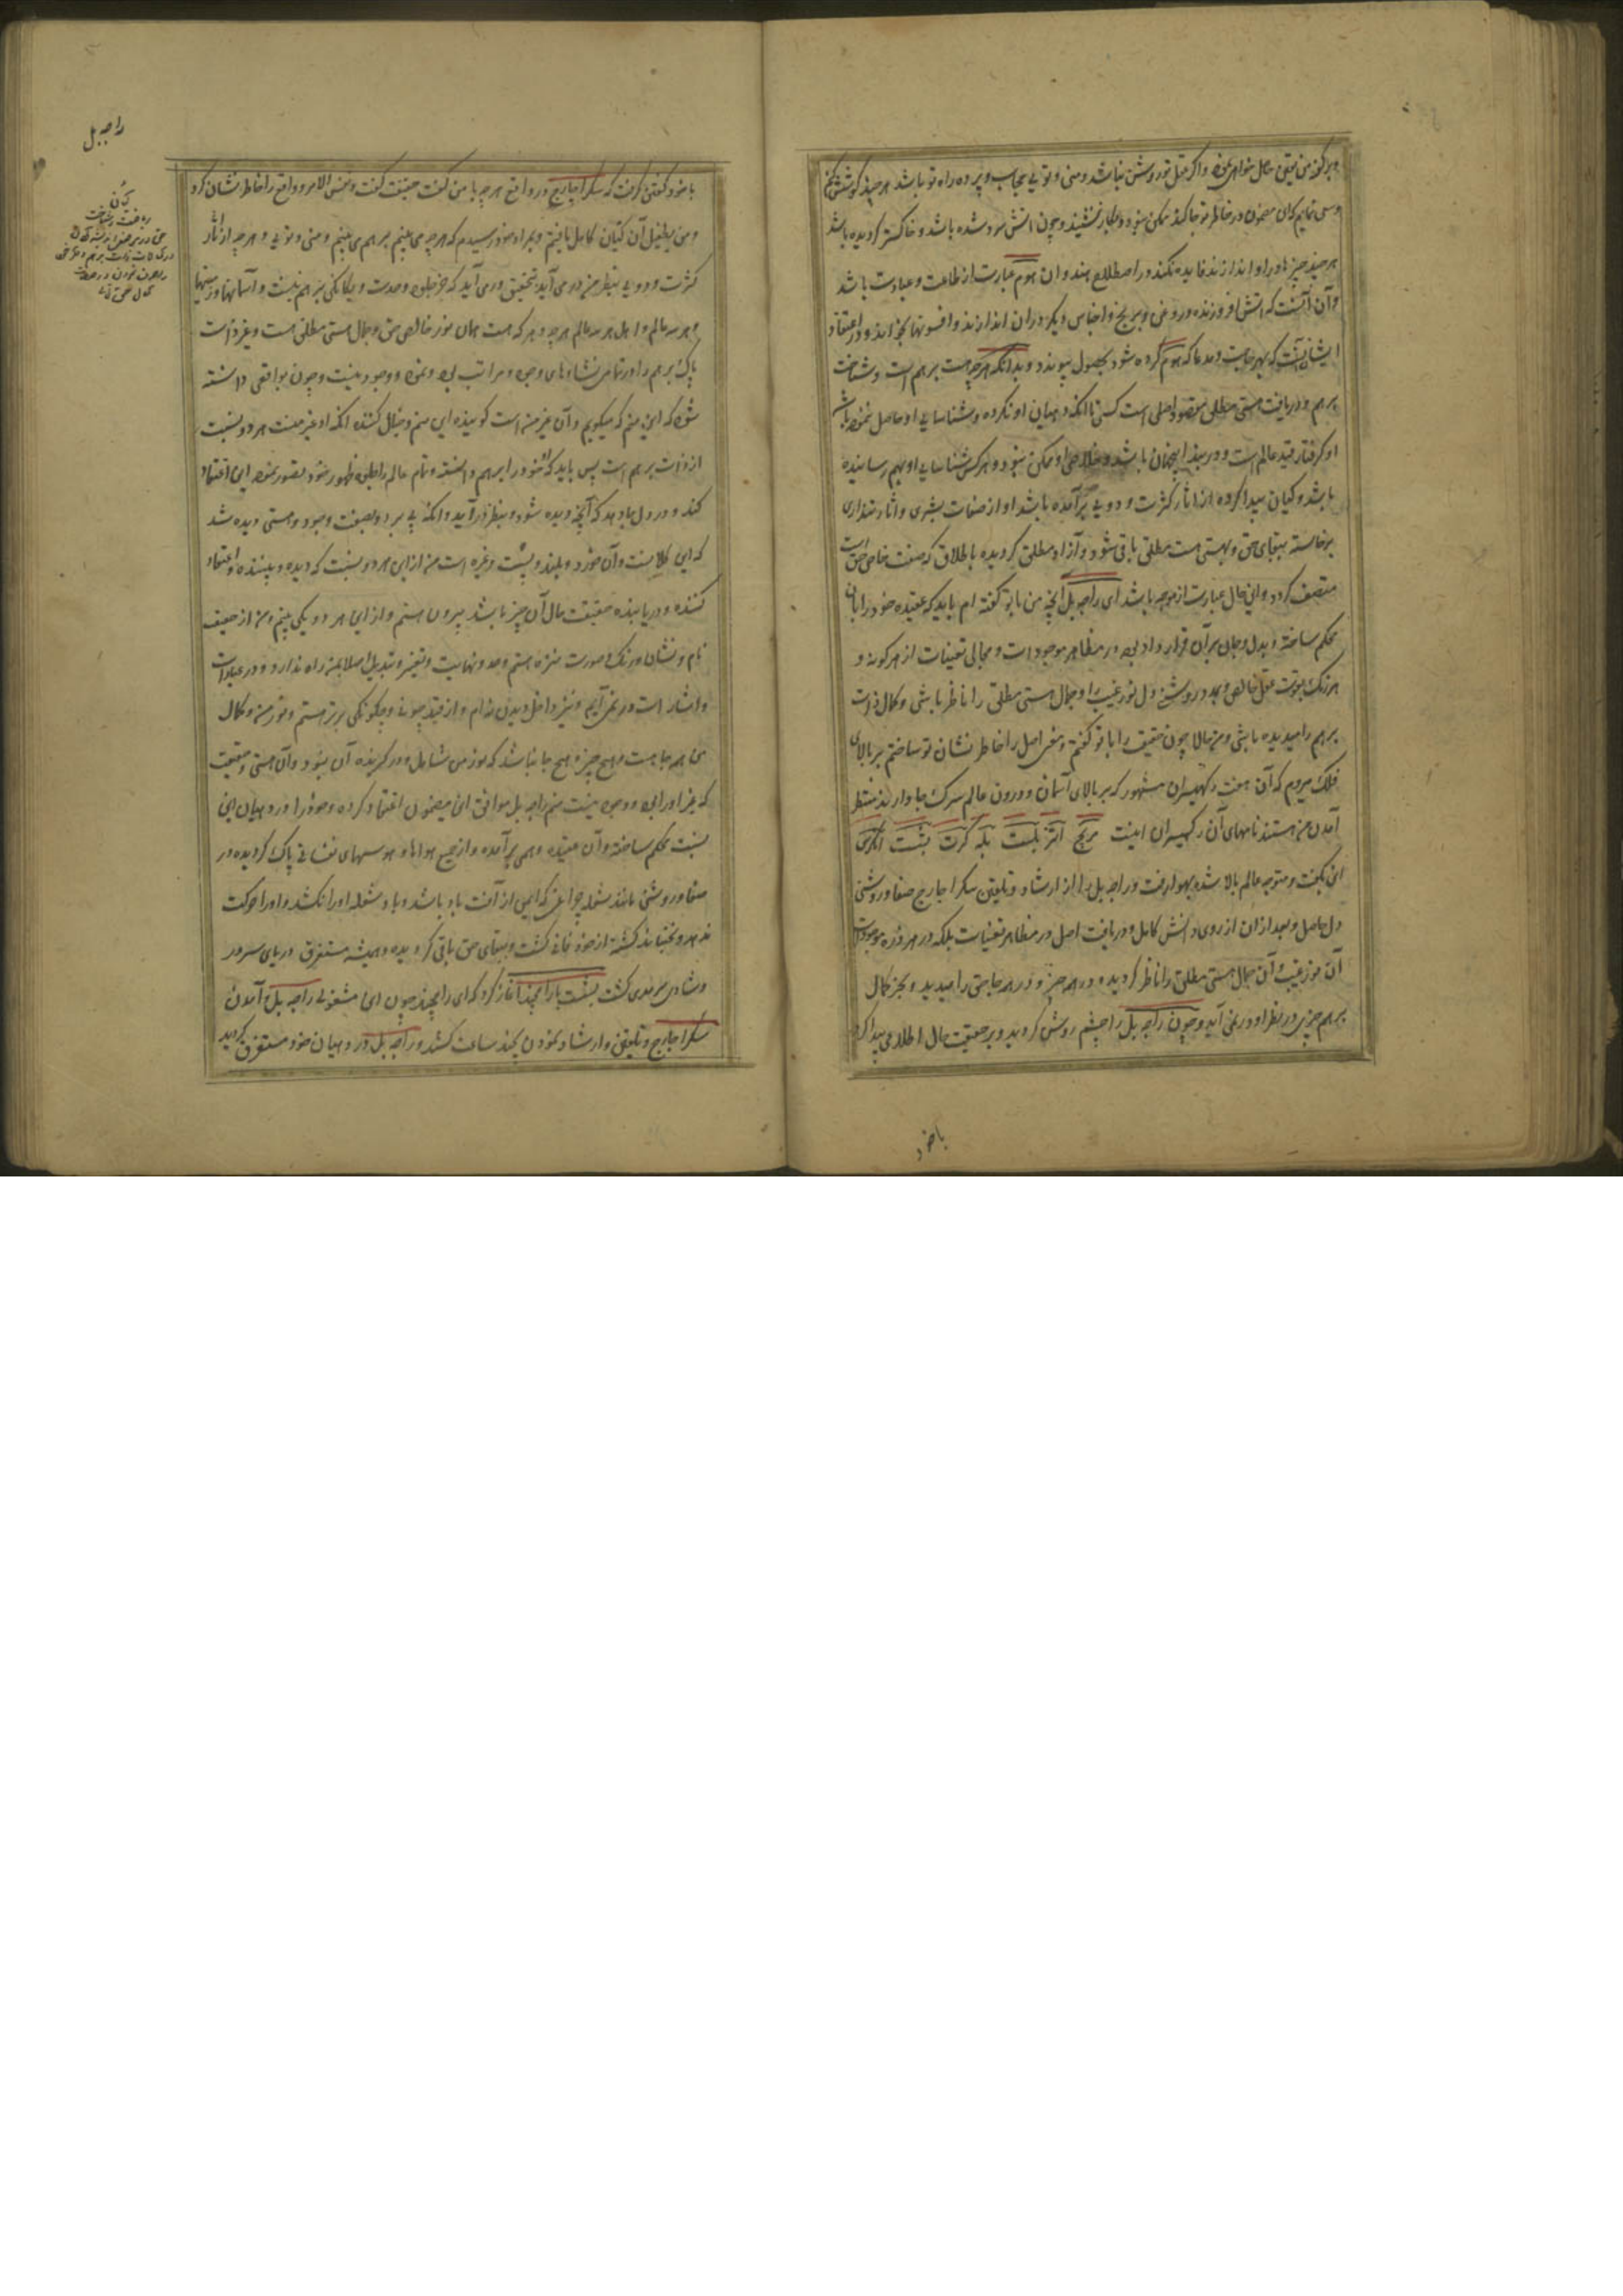 و سعی نمایم کان مضمون در خاطر تو جا کند ممکن نبود و بکار ننشیند و چون آتش سرد شده باشد و خاکستر کردیده باشد
هر چند چیزها در او اندازند فایده نکند در اصطلاح هند و ان هوم عبارت از طاعت و عبادت باشد
و آن آنست که آتش افروزند و روغن و برنج و اجناس دیگر در ان اندازند و افسونها بخوانند و در اعتقاد
ایشان آنست که بهر حاجت و مدعا که هوم کرده شود بحصول پیوندد و بدانکه هر چه هست برهم است و شناخت
برهم و دریافت هستی مطلق مقصود اصلی است کسی تا آنکه دهیان او نکرده و شناسایی او حاصل ننموده باشد
او گرفتار قید عالم است و در بند اینجهان باشد و خلاصی او ممکن نبود و هر کس شناسایی او بهم رسانیده
باشد و کیان پیدا کرده از آثار کثرت و دویی برآمده باشد او از صفات بشری و آثار
برخاسته ببقای حق و بهستی هست مطلق باقی شود و آزاد مطلق کردیده باطلاق که صفت خاص حق است
متصف کردد و این حال عبارت از موجه باشد ای راجه بل آنچه من با تو گفته ام باید که عقیده خود را بآن
محکم ساخته و بدل و جان بر آن قرار داد در مظاهر موجودات و مجالی تعینات از هر گونه و
هر رنگ بقوت عقل خالص و بمدد روشنی دل نور غیب را و جمال هستی مطلق را ناظر باشی و کمال ذات
برهم را میدیده باشی و من حالا چون حقیقت را با تو گفتم و معنی اصل را خاطر نشان تو ساختم بر بالای
فلک میروم که آن هفت رکهیسران مشهور که بر بالای آسمان و درون عالم سرگ جا دارند منتظر
آمدن من هستند نامهای آن رکهیسران اینست مریچ اتر پلست پله کرت بشست انگرس
این بگفت و متوجه عالم بالا شده بهوا رفت و راجه بل را از ارشاد و تلقین سکراچارج صفا و روشنی
دل حاصل و بعد از ان از روی دانش کامل و دریافت اصل در مظاهر تعینات بلکه در هر ذره موجودات
آن نور غیب و آن جمال هستی مطلق را ناظر کردیده و در هر چیز و در هر جا حق را میدید و بجز کمال
برهم چیزی در نظر او در نمی آید و چون راجه بل را چشم روشن کردید و بر حقیقت حال اطلاعی پیدا کرد
باخود
راجه بل
باخود گفتن گرفت که سکراچارج در واقع هر چه با من گفت حقیقت گفت و نفس الامر و واقع را خاطر نشان کرد
و من بطفیل آن کیان کامل یافتم و بمراد خود رسیدم که هر چه می بینم برهم می بینم و منی و تویی و هر چه از آثار
کثرت و دویی بنظر من در می آید بتحقیق در می آید که جز جلوه وحدت و یگانگی برهم نیست و آسمانها و زمینها
و هر سه عالم و اهل هر سه عالم هر چه و هر که هست همان نور خالص حق و جمال هستی مطلق است و غیر ذات
پاک برهم را در تمامی نشأه های وجود و مراتب بود و نمود وجود نیست و چون بواقعی دانسته
شود که این منم که میگویم و آن غیر من است گوینده این منم و خیال کننده آنکه او غیر منست هر دو نسبت
از ذات برهم است پس باید که خود را برهم دانسته و تمام عالم را جلوه ظهور خود تصور نموده این اعتقاد
کند و در دل جا دهد که آنچه دیده شود و بنظر درآید و آنکه پی برد و بصفت وجود و هستی دیده شد
که این کلانست و آن خورد و بلند و پست و غیره است من از این هر دو نسبت که دیده و بیننده و اعتقاد
کننده و دریابنده حقیقت حال آن چیز باشد بیرون هستم و از این هر دو یکی نیم و من از
نام و نشان و رنگ و صورت منزه هستم و حد و نهایت و تغیر و تبدیل اصلا بمن راه ندارد و در عبارات
و اشارات در نمی آیم و نیز داخل و بدن ندارم و از قید چونی و چگونگی برتر هستم و نور من و کمال
من همه جا هست و هیچ چیز و هیچ جا نباشد که نور من شامل و در گیرنده آن نبود و آن هستی و حقیقت
که غیر او را بود و وجود نیست منم راجه بل موافق این مضمون اعتقاد کرده و خود را در دهیان این
نسبت محکم ساخته و آن عقیده وهمی برآمده و از جمیع هواها و هوسهای نفسانی پاک گردیده در
صفا و روشنی مانند شعله چراغی که ایمن از آفت باد باشد و باد شعله او را نکشد و او را حرکت
ندهد و نجنباند گشته از خود فانی گشت و ببقای حق باقی گردیده و همیشه مستغرق دریای سرور
و شادی سرمدی گشت بشست با رامچند آغاز کرد که ای رامچند چون این مشغولی راجه بل و آمدن
سکراچارج و تلقین و ارشاد نمودن بچند ساعت کشید و راجه بل در دهیان خود مستغرق گردید